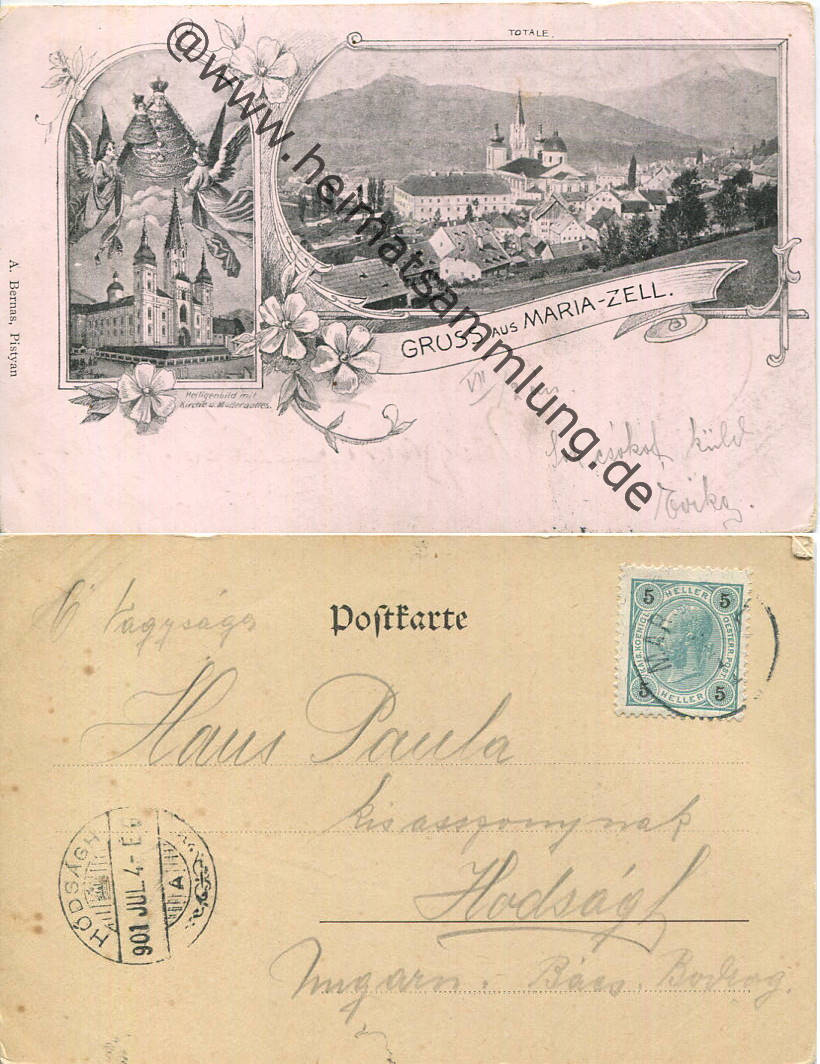 TOTALE.
GRUSS AUS MARIA-ZELL.
Heiligenbild mit
Kirche u. Muttergottes.
A. Bernas, Pistyan
@www.heimatsammlung.de
csókot küld
Postkarte
Nagyságos
Haus Paula
kisasszonynak
Hodságh
Ungarn. Bács. Bodrog.
5 HELLER 5
KAIS. KOENIGL. OESTERR. POST
5 HELLER 5
MAR
HÓDSÁGH
901 JUL 4- E
A